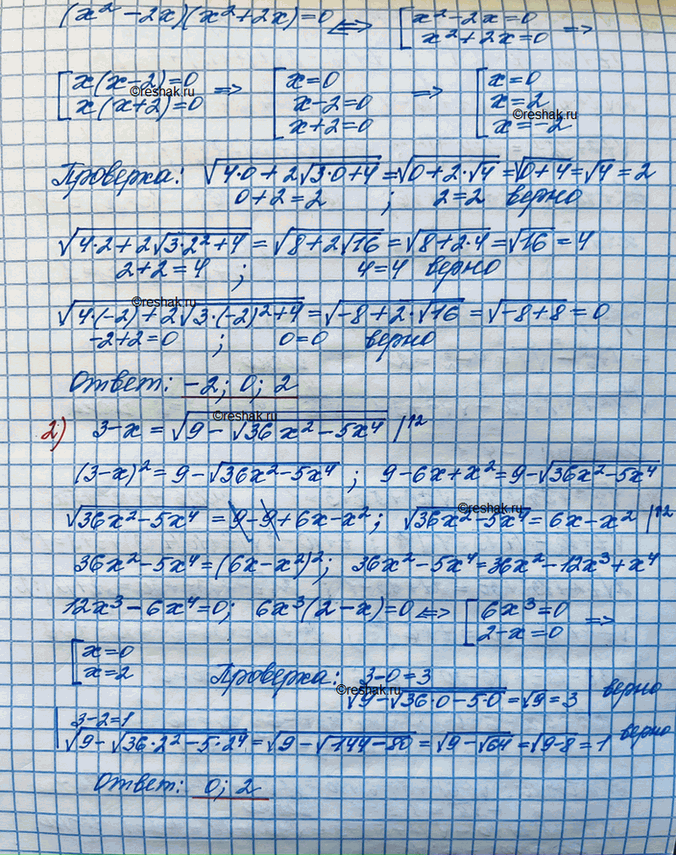 (x² - 2x)(x² + 2x) = 0 <=> [ x² - 2x = 0
x² + 2x = 0 =>
[ x(x-2) = 0
x(x+2) = 0 => [ x = 0
x-2 = 0
x+2 = 0 => [ x = 0
x = 2
x = -2
©reshak.ru
©reshak.ru
Проверка: √(4·0 + 2√(3·0+4)) = √(0+2·√4) = √(0+4) = √4 = 2
0+2=2 ; 2=2 верно
√(4·2+2√(3·2²+4)) = √(8+2√16) = √(8+2·4) = √16 = 4
2+2=4 ; 4=4 верно
©reshak.ru
√(4·(-2)+2√(3·(-2)²+4)) = √(-8+2·√16) = √(-8+8) = 0
-2+2=0 ; 0=0 верно
Ответ: -2; 0; 2
©reshak.ru
2) 3-x = √(9-√(36x²-5x⁴)) |↑2
(3-x)² = 9-√(36x²-5x⁴) ; 9-6x+x² = 9-√(36x²-5x⁴)
©reshak.ru
√(36x²-5x⁴) = 9-9+6x-x² ; √(36x²-5x⁴) = 6x-x² |↑2
36x²-5x⁴ = (6x-x²)² ; 36x²-5x⁴ = 36x²-12x³+x⁴
12x³-6x⁴=0; 6x³(2-x)=0 <=> [ 6x³=0
2-x=0 =>
[ x=0
x=2
Проверка: 3-0=3
©reshak.ru
√(9-√(36·0-5·0)) = √9 = 3 | верно
3-2=1
√(9-√(36·2²-5·2⁴)) = √(9-√(144-80)) = √(9-√64) = √(9-8) = 1 верно
Ответ: 0; 2